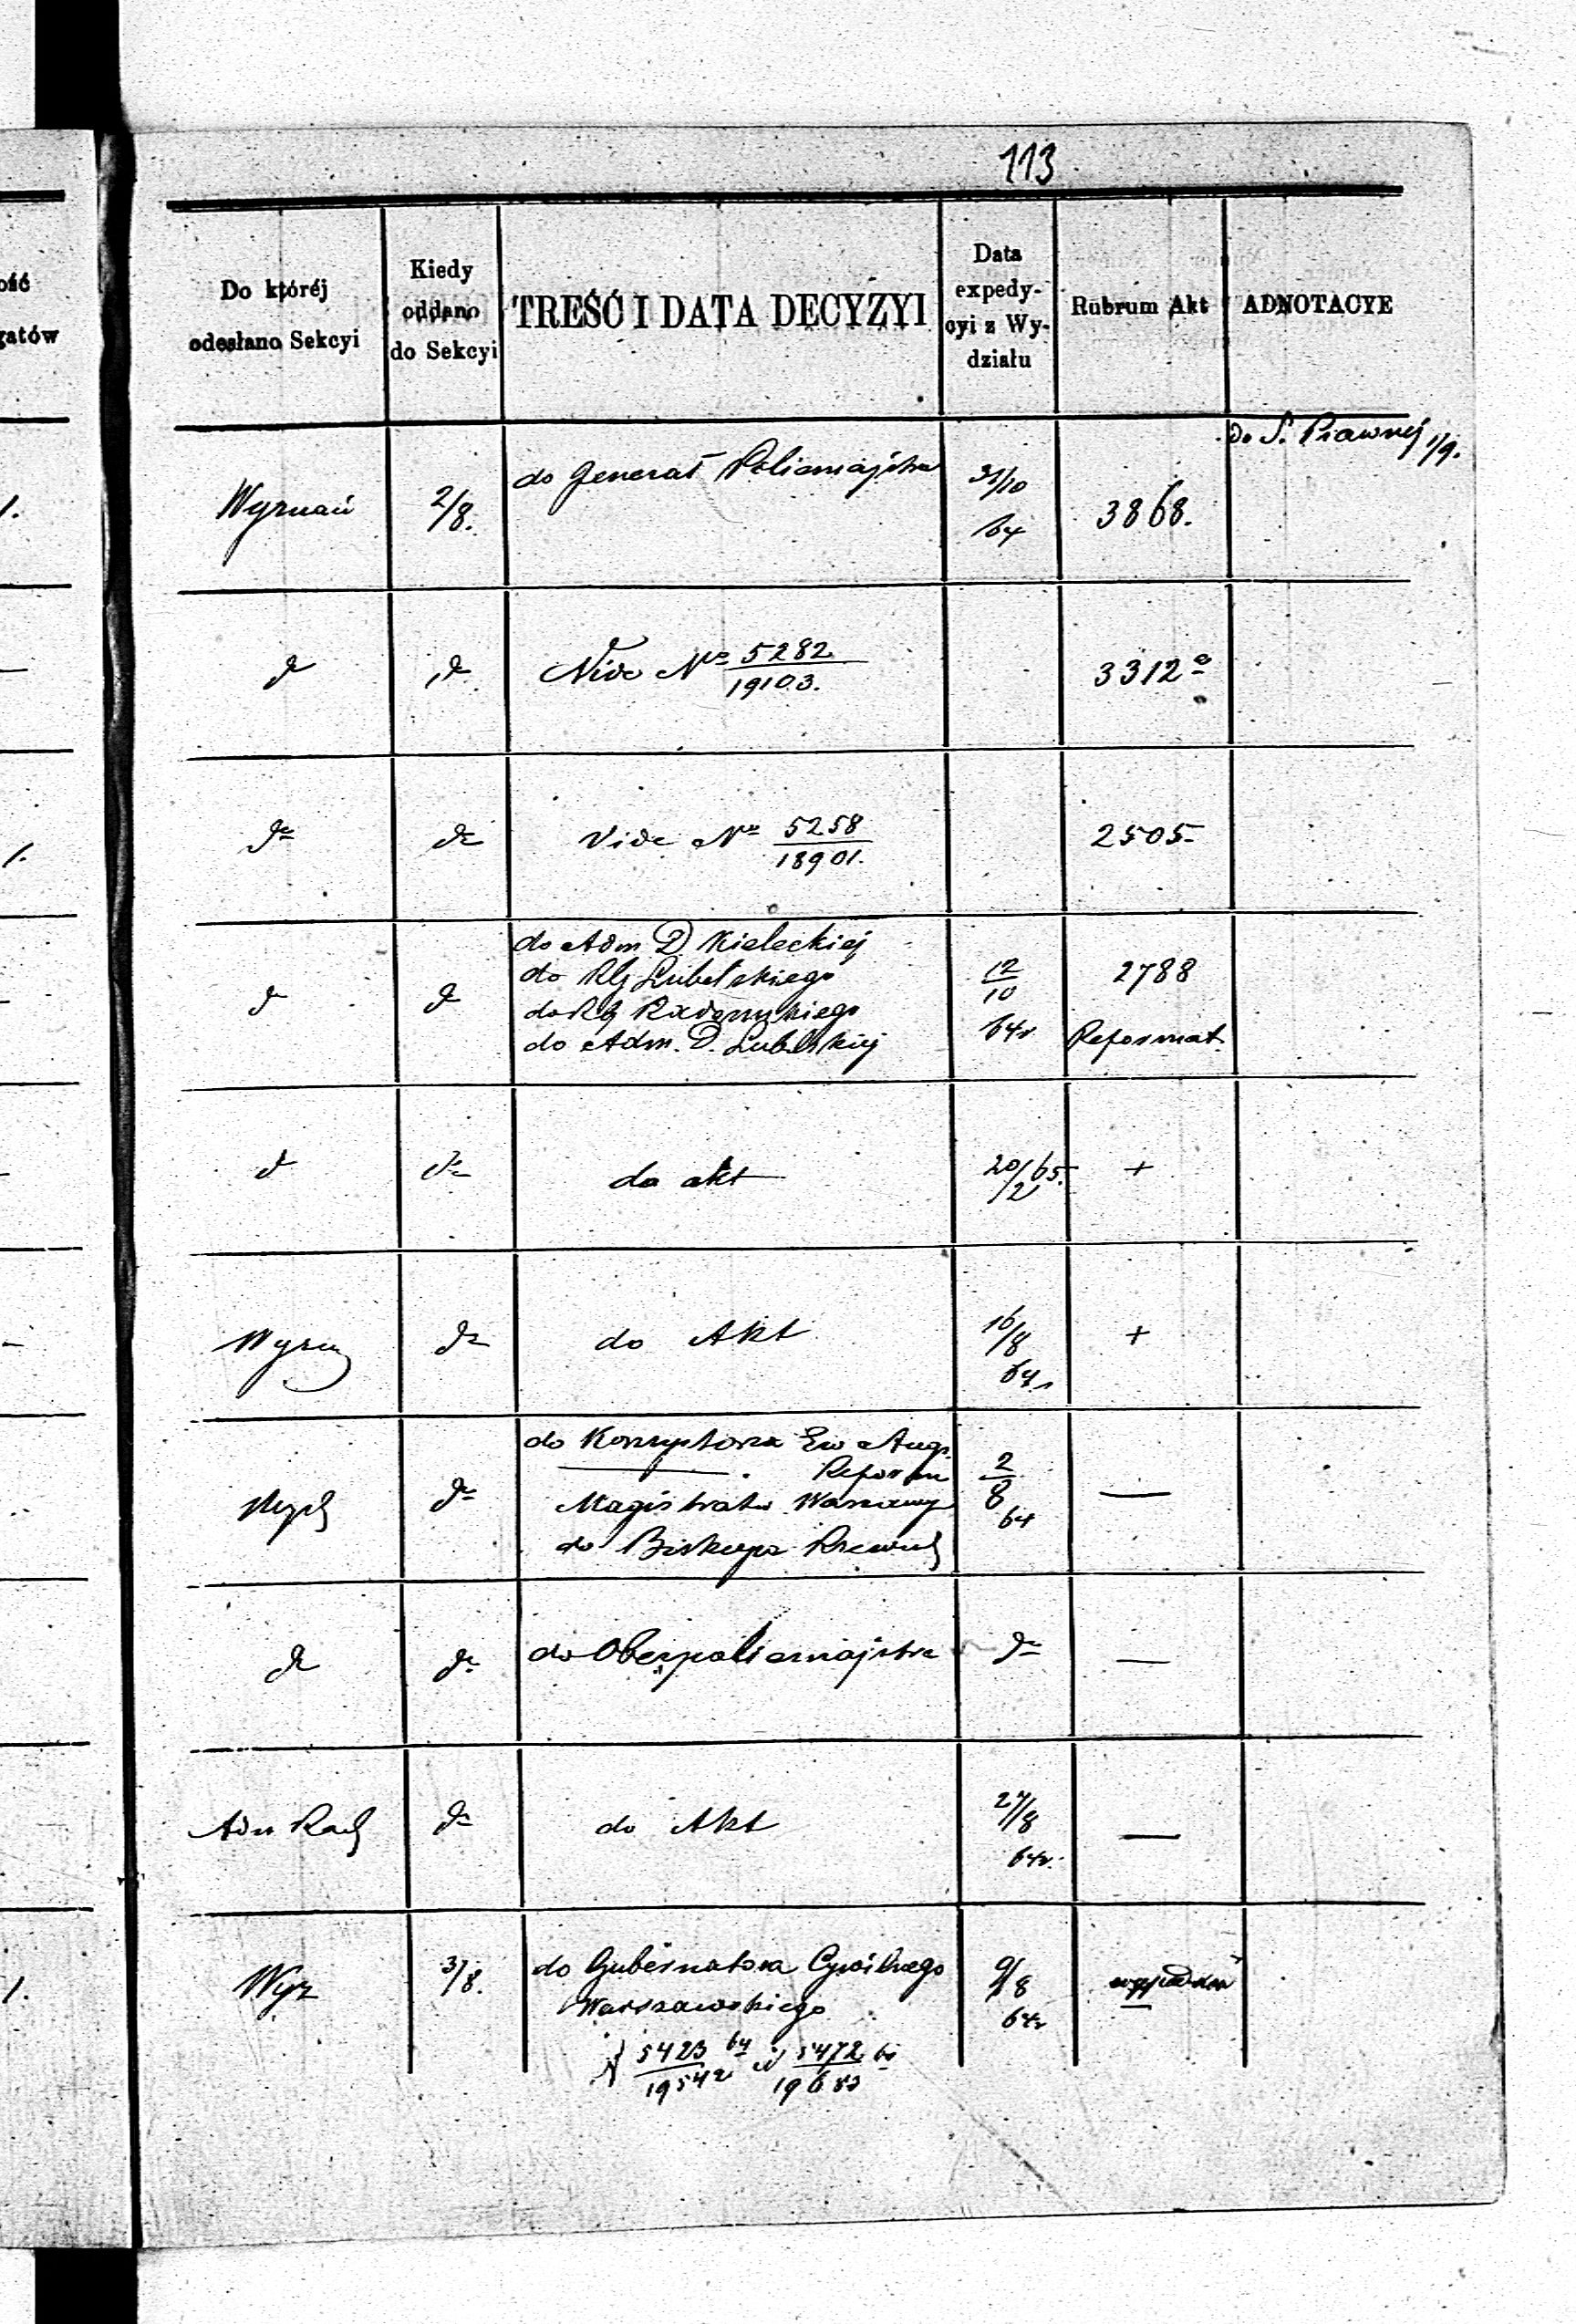 113
ość
gatów
Do któréj
odesłano Sekcyi
Kiedy
oddano
do Sekcyi
TREŚĆ I DATA DECYZYI
Data
expedy-
cyi z Wy-
działu
Rubrum Akt
ADNOTACYE
Wyznań
2/8.
do Generał Policmajstra
31/10
64
3868.
do S. Prawnej 1/9.
do
do
Vide No 5282
19103.
3312 a
do
do
Vide No 5258
18901.
2505
do
do
do Adm D Kieleckiej
do RG Lubelskiego
do RG Radomskiego
do Adm. D. Lubelskiej
12
10
64r
2788
Reformat.
do
do
do akt
20/2 65.
+
Wyzn
do
do Akt
16/8
64r
+
do
do Konsystorza Ew Augs.
Reform
Magistratu Warszawy
do Biskupa
2
8
64
—
do
do
do Oberpolicmajstra
do
—
Adm Rach
do
do Akt
27/8
64r.
—
Wyz
3/8.
do Gubernatora Cywilnego
Warszawskiego
5423 64
19542
5472
9/8
64r